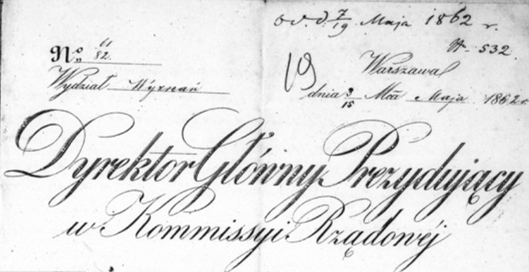 7/19 Maja 1862 r.
№ 532.
№ 11/52.
Warszawa
Wydział Wyznań
19
dnia 3/15 Maja 1862 r.
Dyrektor Główny Prezydujący
w Kommissyi Rządowéj